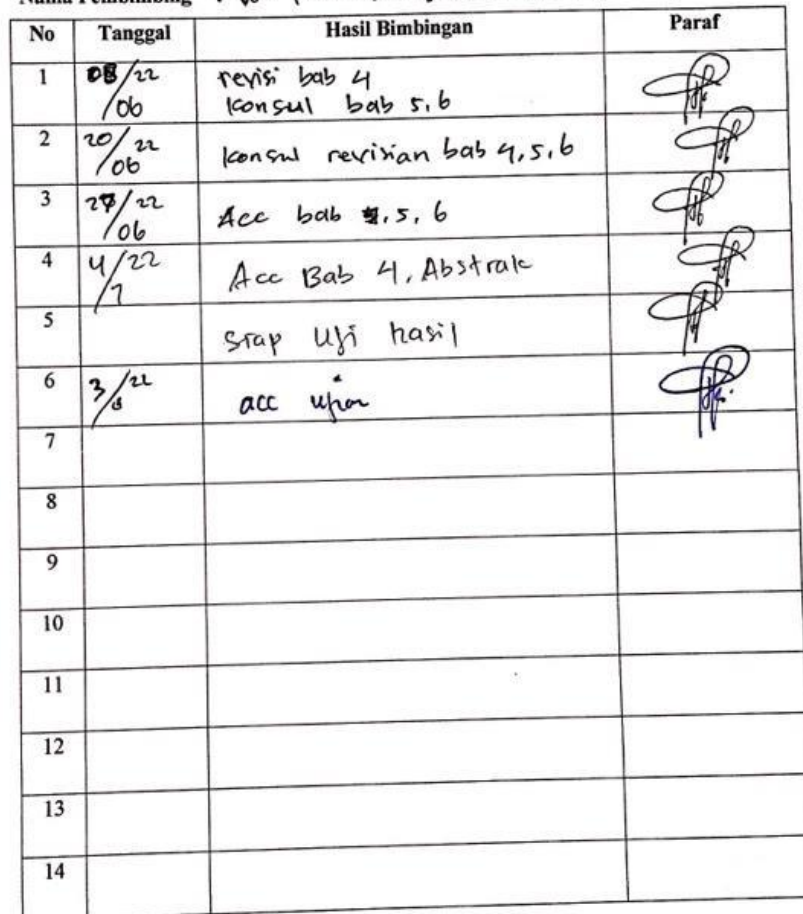 Nama Pembimbing
No Tanggal Hasil Bimbingan Paraf
1 08/22 revisi bab 4
/06 konsul bab 5,6
2 20/22 konsul revisian bab 4,5,6
/06
3 27/22 Acc bab 5,6
/06
4 4/22 Acc Bab 4, Abstrak
/7
5 siap Uji hasil
6 3/22 acc
7
8
9
10
11
12
13
14